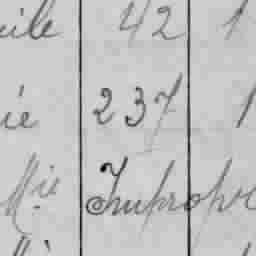 ile 42 1
ie 237 1
Mie Impropre